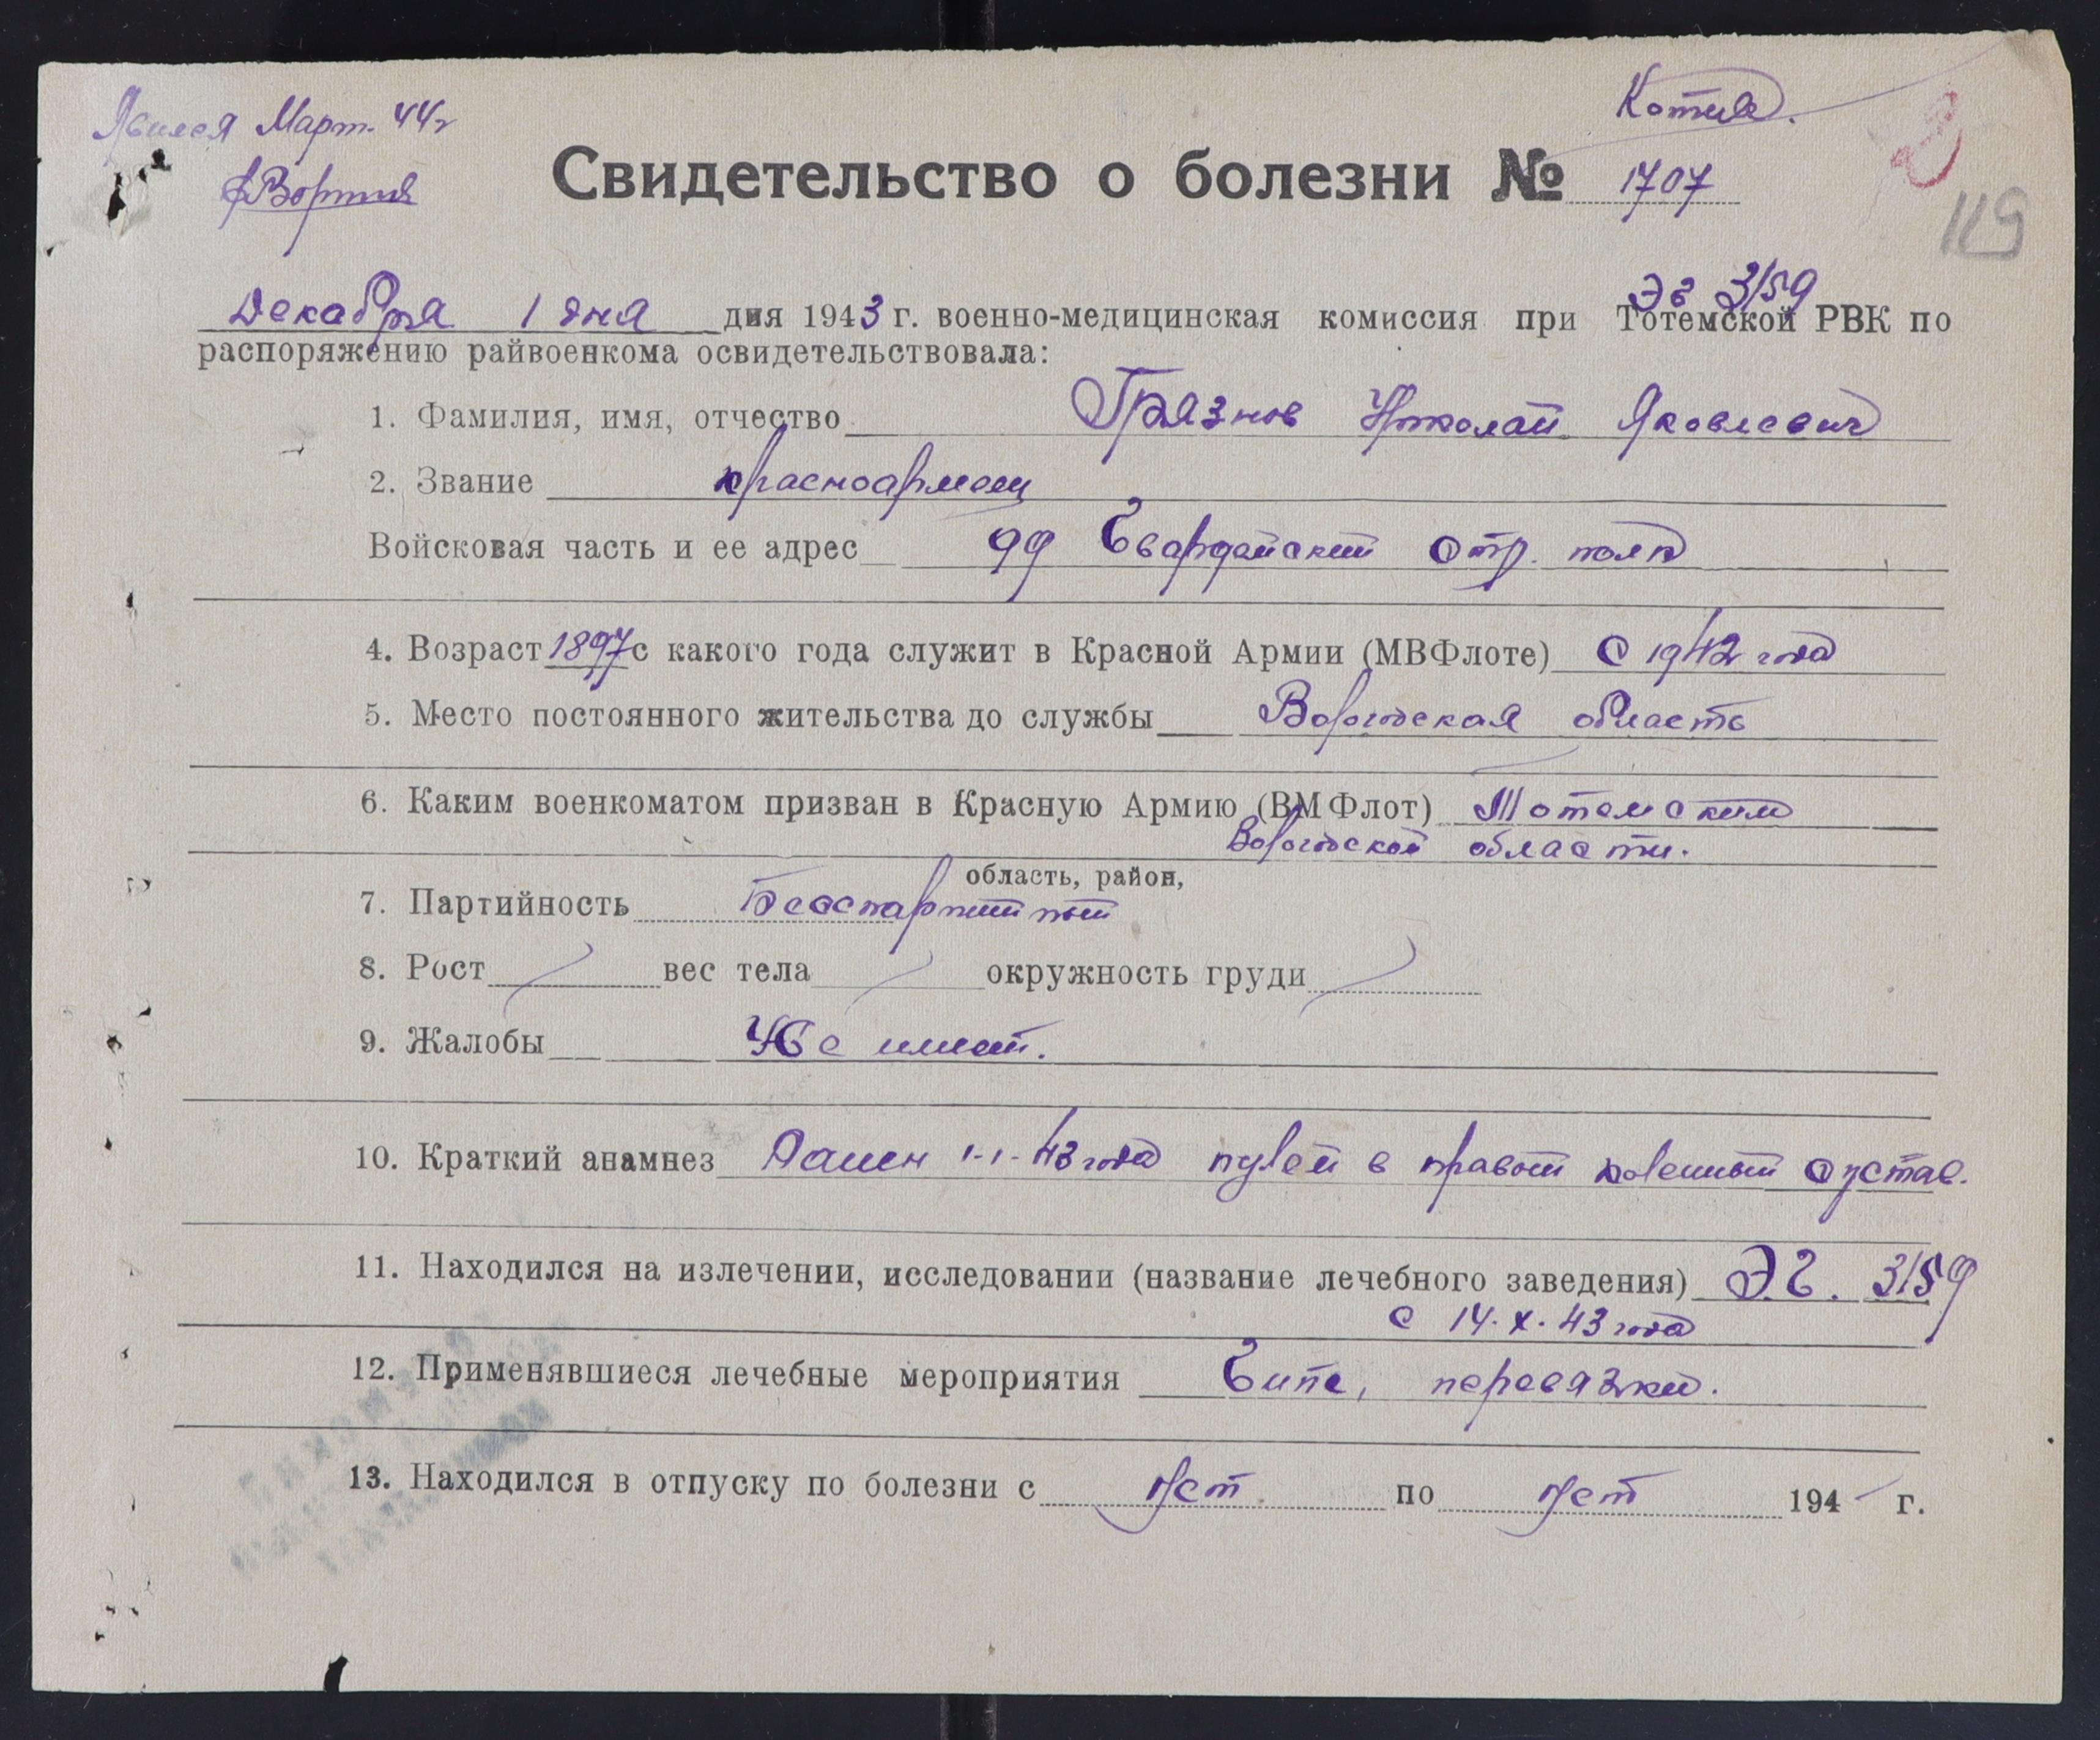 Явился Март. 44г
Котия.
Свидетельство о болезни № 1707
119
ЭГ 3159
Декабря 1 дня дня 1943 г. военно-медицинская комиссия при Тотемской РВК по
распоряжению райвоенкома освидетельствовала:
1. Фамилия, имя, отчество Грязнов Николай Яковлевич
2. Звание красноармеец
Войсковая часть и ее адрес 99 Гвардейский Стр. полк
4. Возраст 1897 с какого года служит в Красной Армии (МВФлоте) С 1942 года
5. Место постоянного жительства до службы Вологодская область
6. Каким военкоматом призван в Красную Армию (ВМФлот) Тотемским
Вологодской области.
область, район,
7. Партийность Беспартийный
8. Рост вес тела окружность груди
9. Жалобы Не имеет.
10. Краткий анамнез Ранен 1-1-43 года пулей в правый коленный сустав.
11. Находился на излечении, исследовании (название лечебного заведения) ЭГ. 3159
с 14.X.43 года
12. Применявшиеся лечебные мероприятия Гипс, перевязки.
13. Находился в отпуску по болезни с Нет по Нет 194 г.